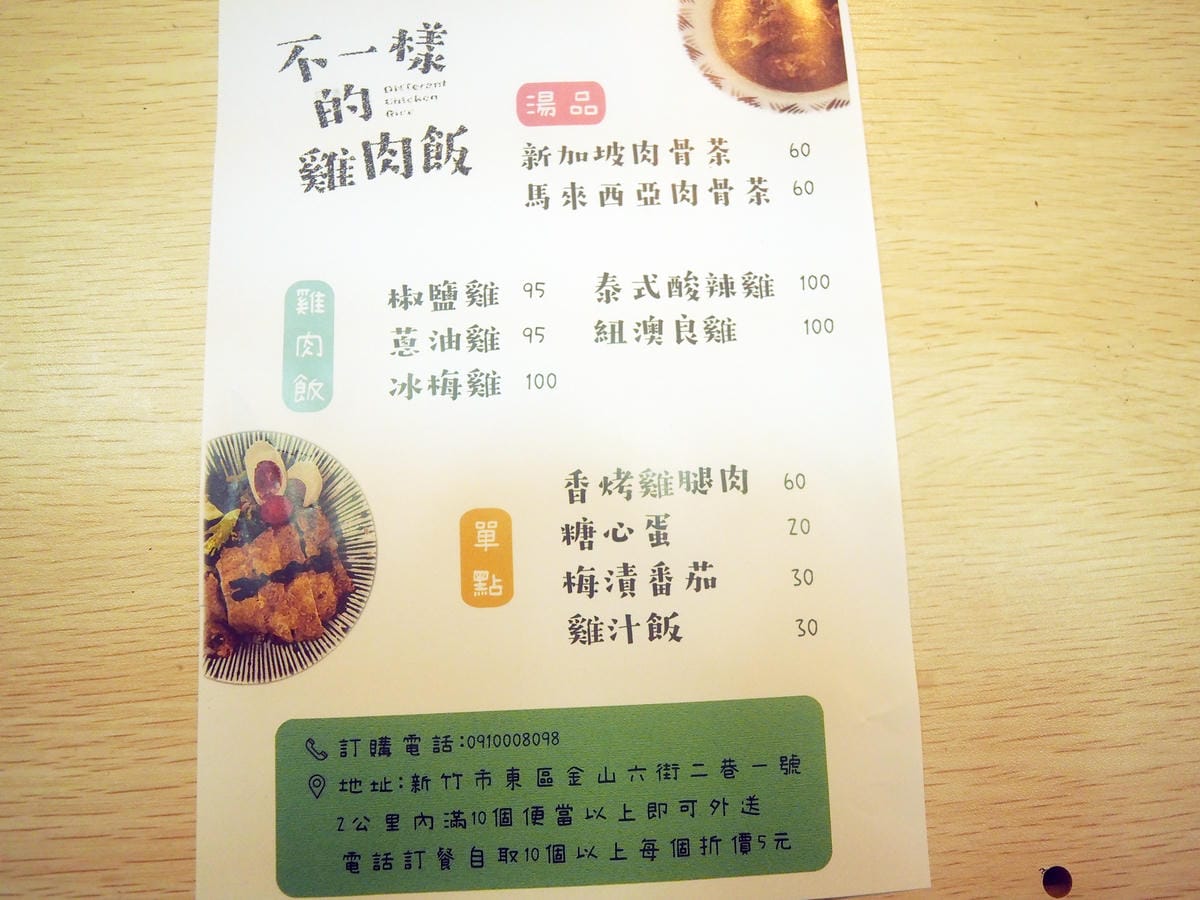 不一樣
的
Different
Chicken
Rice
雞肉飯
湯品
新加坡肉骨茶 60
馬來西亞肉骨茶 60
雞肉飯
椒鹽雞 95
蔥油雞 95
冰梅雞 100
泰式酸辣雞 100
紐澳良雞 100
單點
香烤雞腿肉 60
糖心蛋 20
梅漬番茄 30
雞汁飯 30
訂購電話:0910008098
地址:新竹市東區金山六街二巷一號
2公里內滿10個便當以上即可外送
電話訂餐自取10個以上每個折價5元